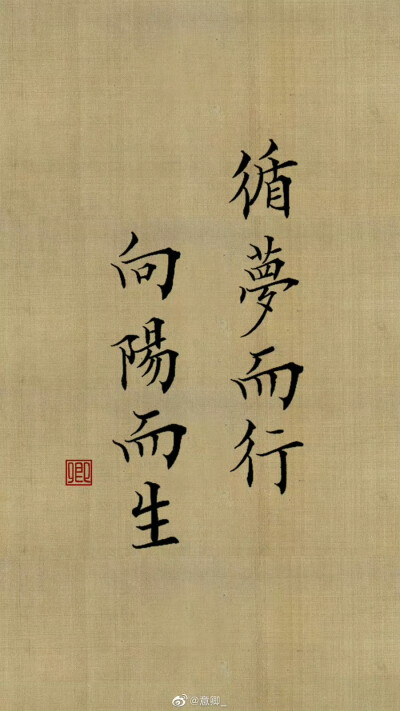 循夢而行
向陽而生
卿
@意卿_